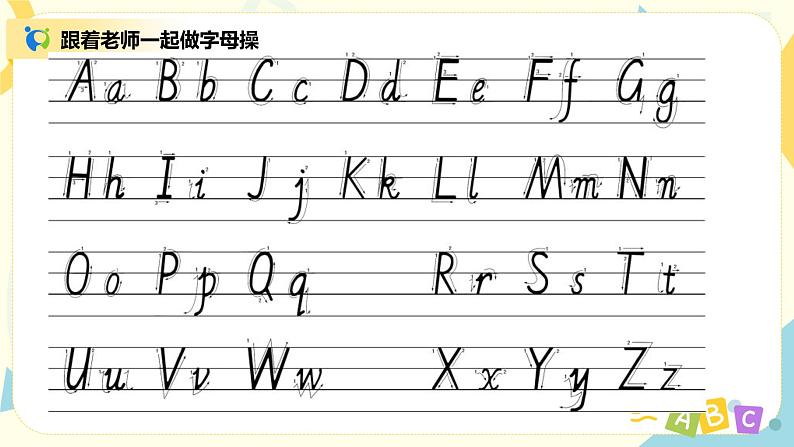 跟着老师一起做字母操
Aa Bb Cc Dd Ee Ff Gg
Hh Ii Jj Kk Ll Mm Nn
Oo Pp Qq Rr Ss Tt
Uu Vv Ww Xx Yy Zz
ABC